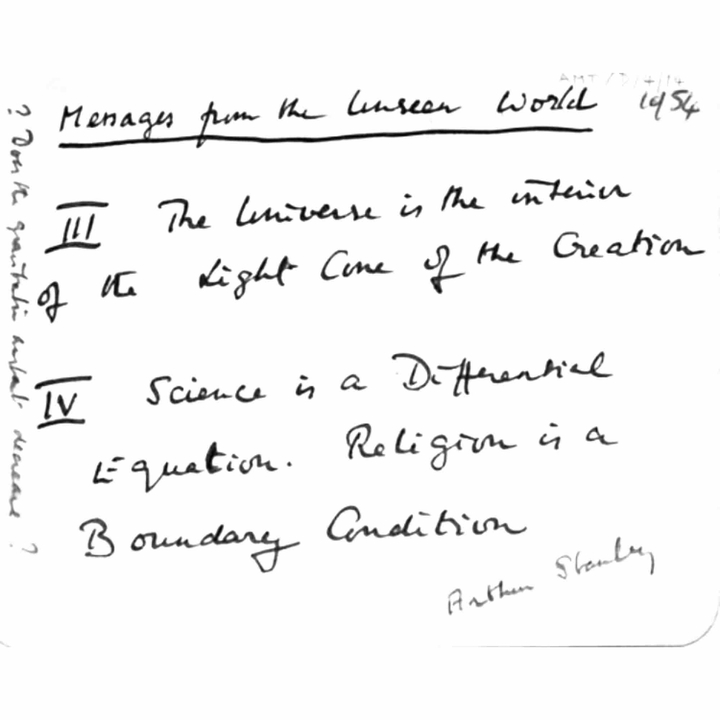 Messages from the Unseen World 1954
III The Universe is the interior
of the Light Cone of the Creation
IV Science is a Differential
Equation. Religion is a
Boundary Condition
Arthur Stanley
? Does the gravitation constant decrease ?
AMT/D/4/14